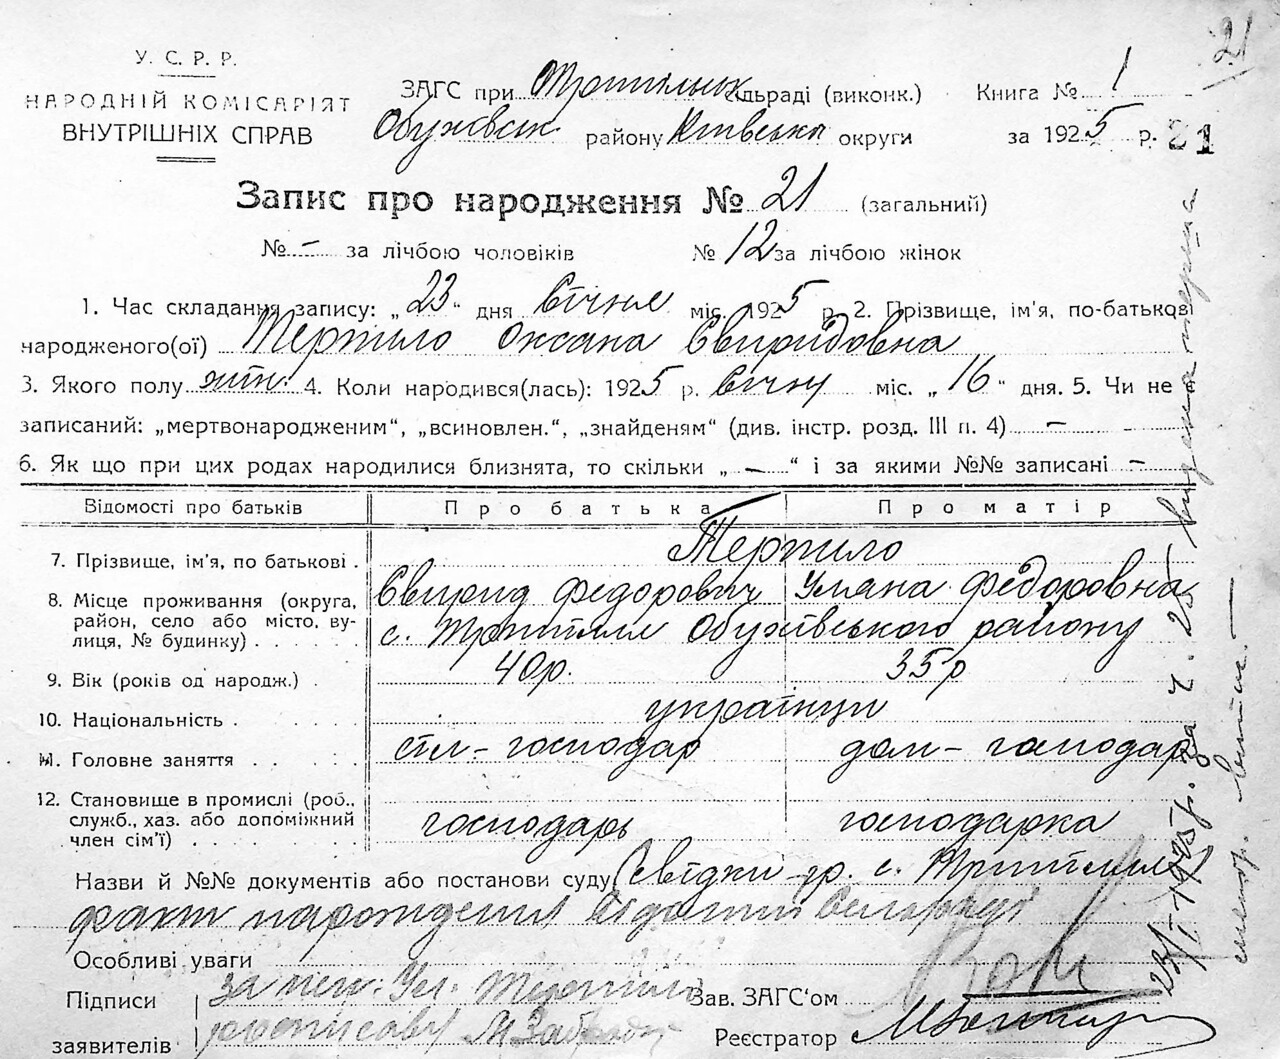 21
У. С. Р. Р.
НАРОДНІЙ КОМІСАРІЯТ
ВНУТРІШНІХ СПРАВ
ЗАГС при Трипільськ сільраді (виконк.) Книга № 1
Обухівськ району Київська округи за 1925 р. 21
Запис про народження № 21 (загальний)
№ – за лічбою чоловіків № 12 за лічбою жінок
1. Час складання запису: „23“ дня Січня міс. 1925 р. 2. Прізвище, ім'я, по-батькові
народженого(ої) Терпило Оксана Свиридовна
3. Якого полу жін. 4. Коли народився(лась): 1925 р. Січня міс. „16“ дня. 5. Чи не є
записаний: „мертвонародженим“, „всиновлен.“, „знайденям“ (див. інстр. розд. III п. 4) –
6. Як що при цих родах народилися близнята, то скільки „–“ і за якими №№ записані –
Відомості про батьків Про батька Про матір
7. Прізвище, ім'я, по батькові . Терпило
Свирид Федорович Уляна Федоровна
8. Місце проживання (округа,
район, село або місто, ву-
лиця, № будинку) . . . . . с. Трипілля Обухівського району
9. Вік (років од народж.) . 40р. 35р
10. Національність . . . . українци
11. Головне заняття . . . . сіл-господар дом-господар
12. Становище в промислі (роб.,
служб., хаз. або допоміжний
член сім'ї) . . . . . . . господарь господарка
Назви й №№ документів або постанови суду Свідки гр. с. Трипілля
факт нарождения відомий Сільраді
Особливі уваги
Підписи за неп. Ул. Терпило Зав. ЗАГС'ом
заявителів росписався М Реєстратор
23/I-1925 р. за ч. 25 видена перша